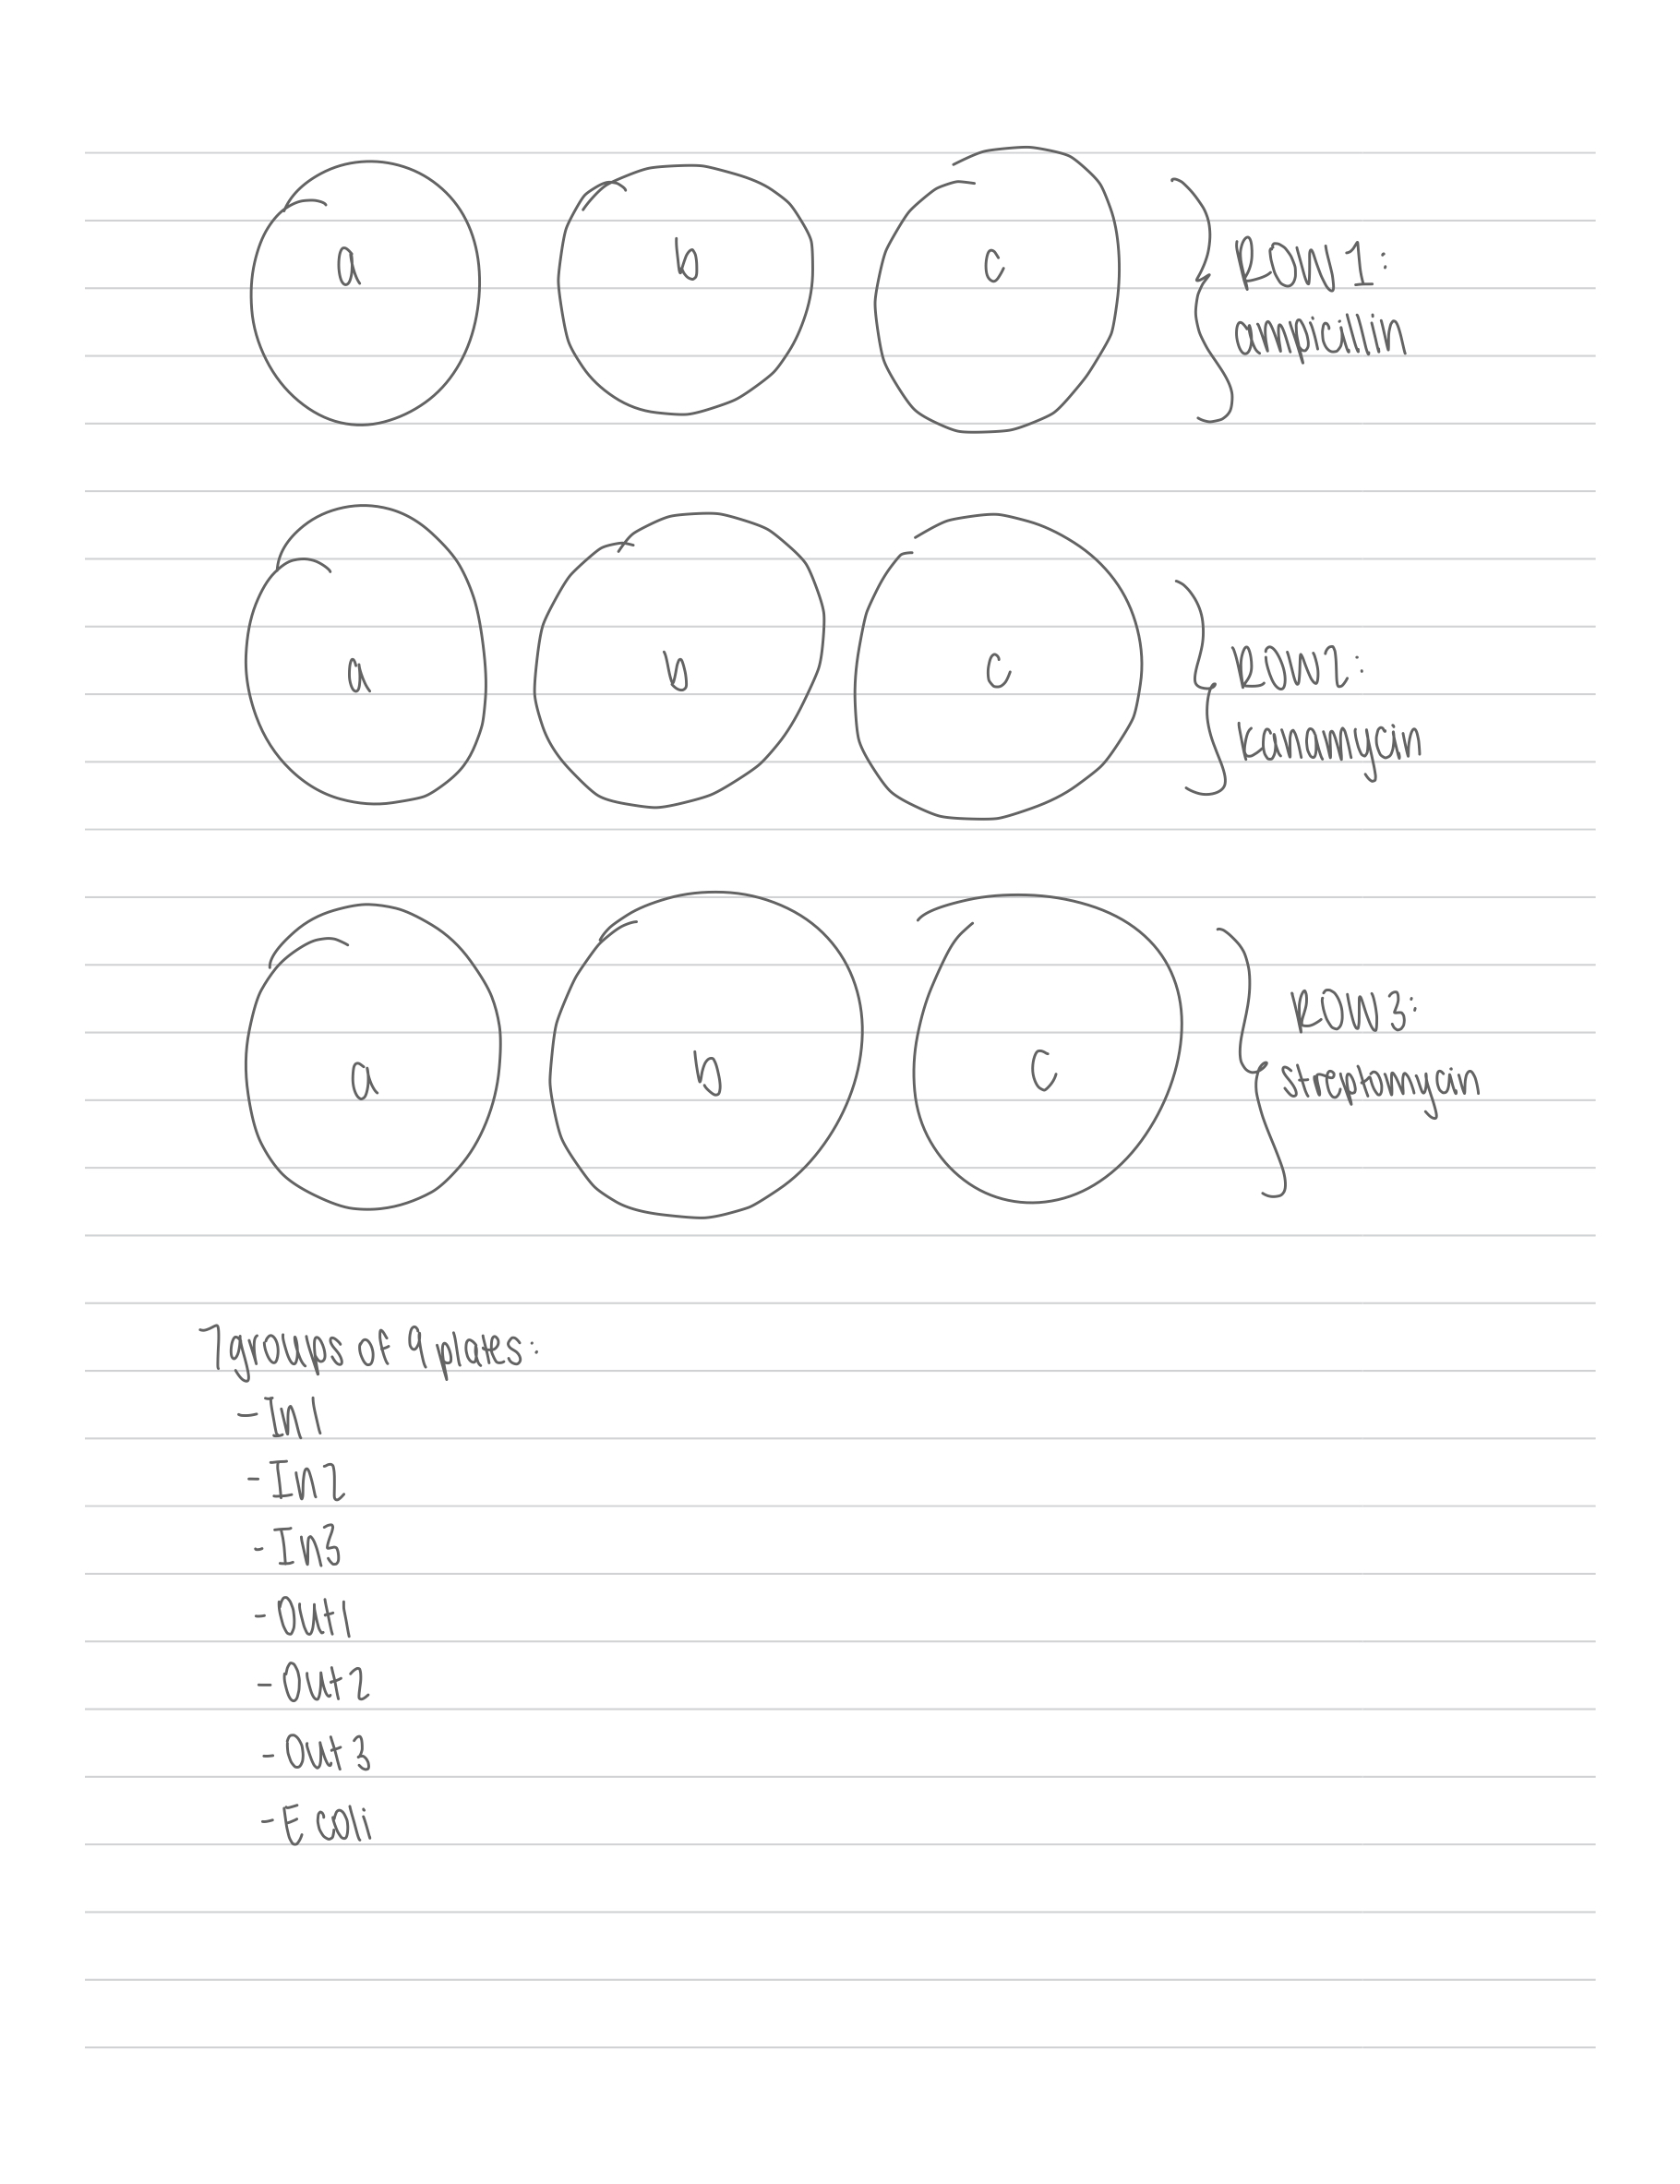 a b c ROW 1:
ampicillin
a b c ROW 2:
kanamycin
a b c ROW 3:
streptomycin
7 groups of 9 plates:
- In 1
- In 2
- In 3
- Out 1
- Out 2
- Out 3
- E coli